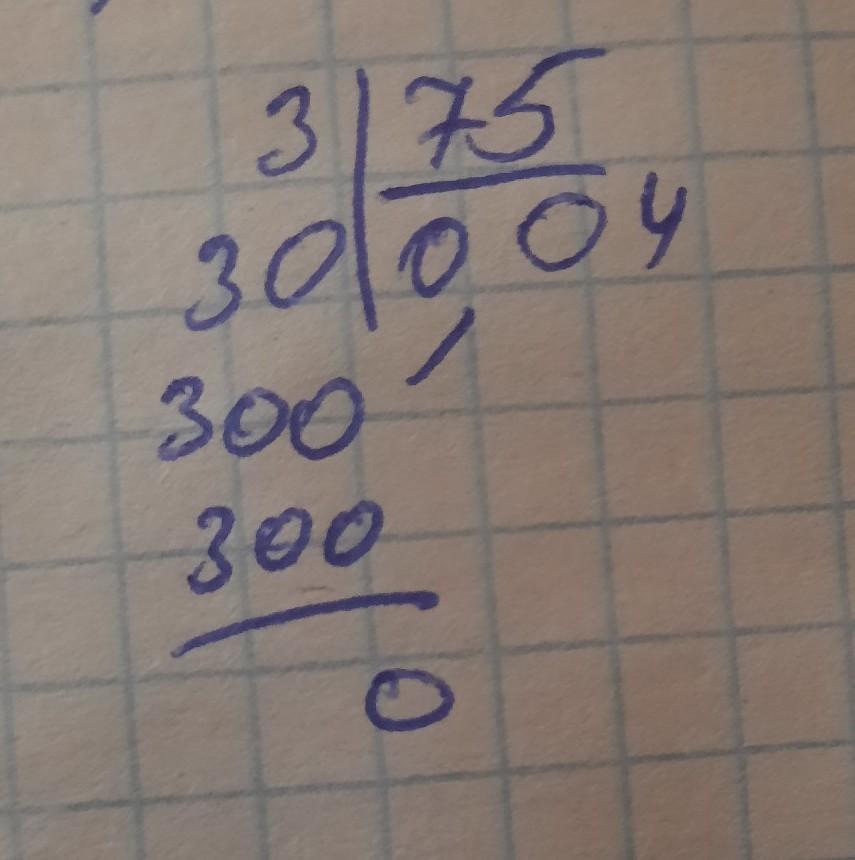 3 | 75
30 | 0,04
300
300
0